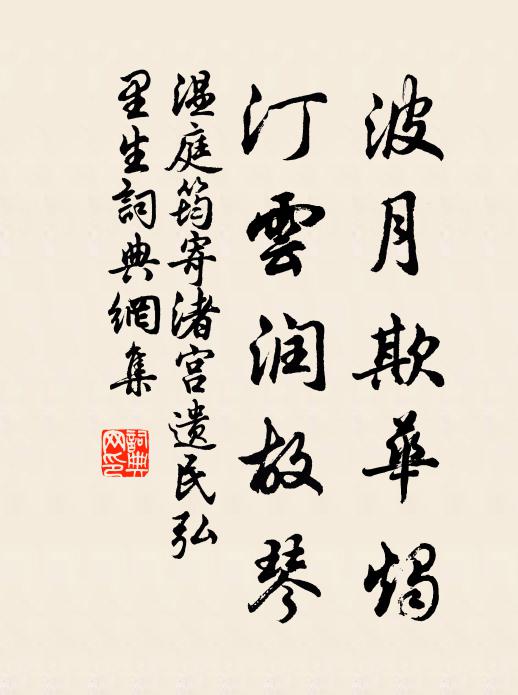 波月欺華燭
汀雲润故琴
温庭筠寄渚宫遗民弘
里生詞典網集
詞典
网印